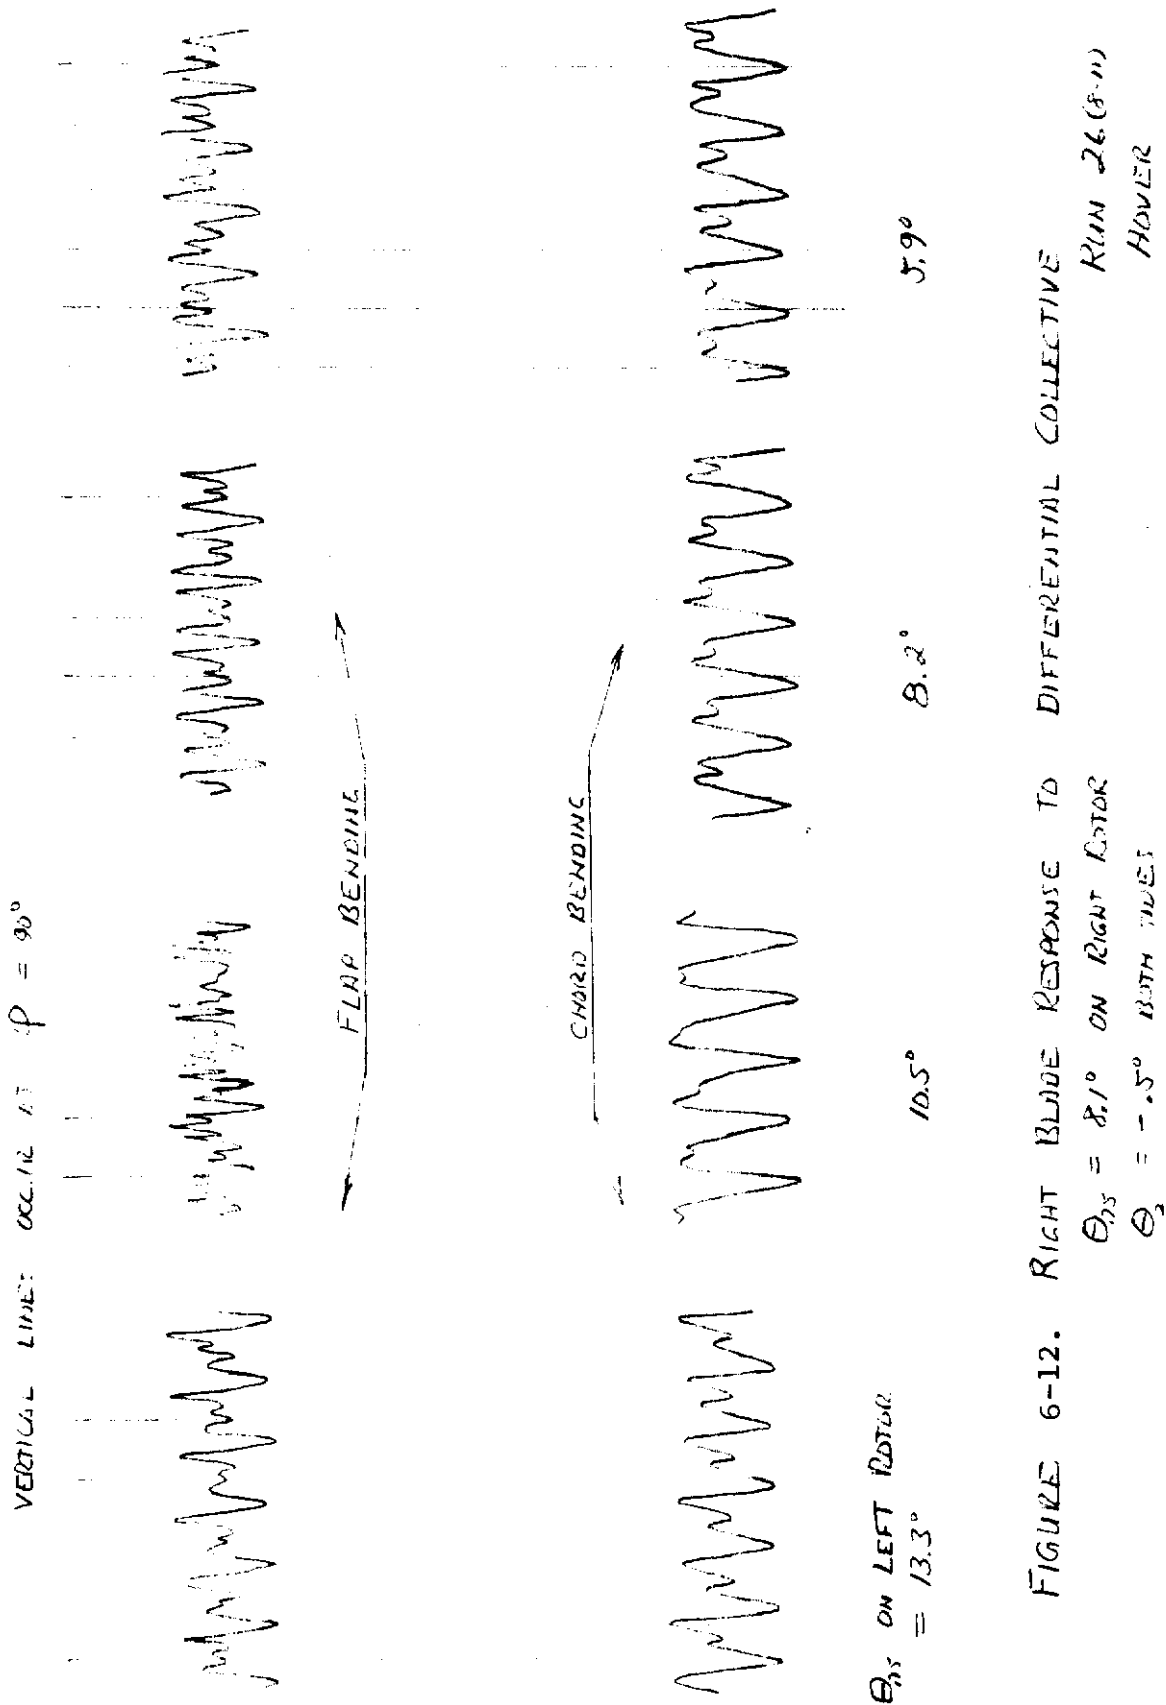 VERTICAL LINES OCCUR AT φ = 90°
FLAP BENDING
CHORD BENDING
θ.75 ON LEFT ROTOR
= 13.3°
10.5°
8.2°
5.9°
FIGURE 6-12. RIGHT BLADE RESPONSE TO DIFFERENTIAL COLLECTIVE
θ.75 = 8.1° ON RIGHT ROTOR
= -.5° BOTH
RUN 26 (8-11)
HOVER